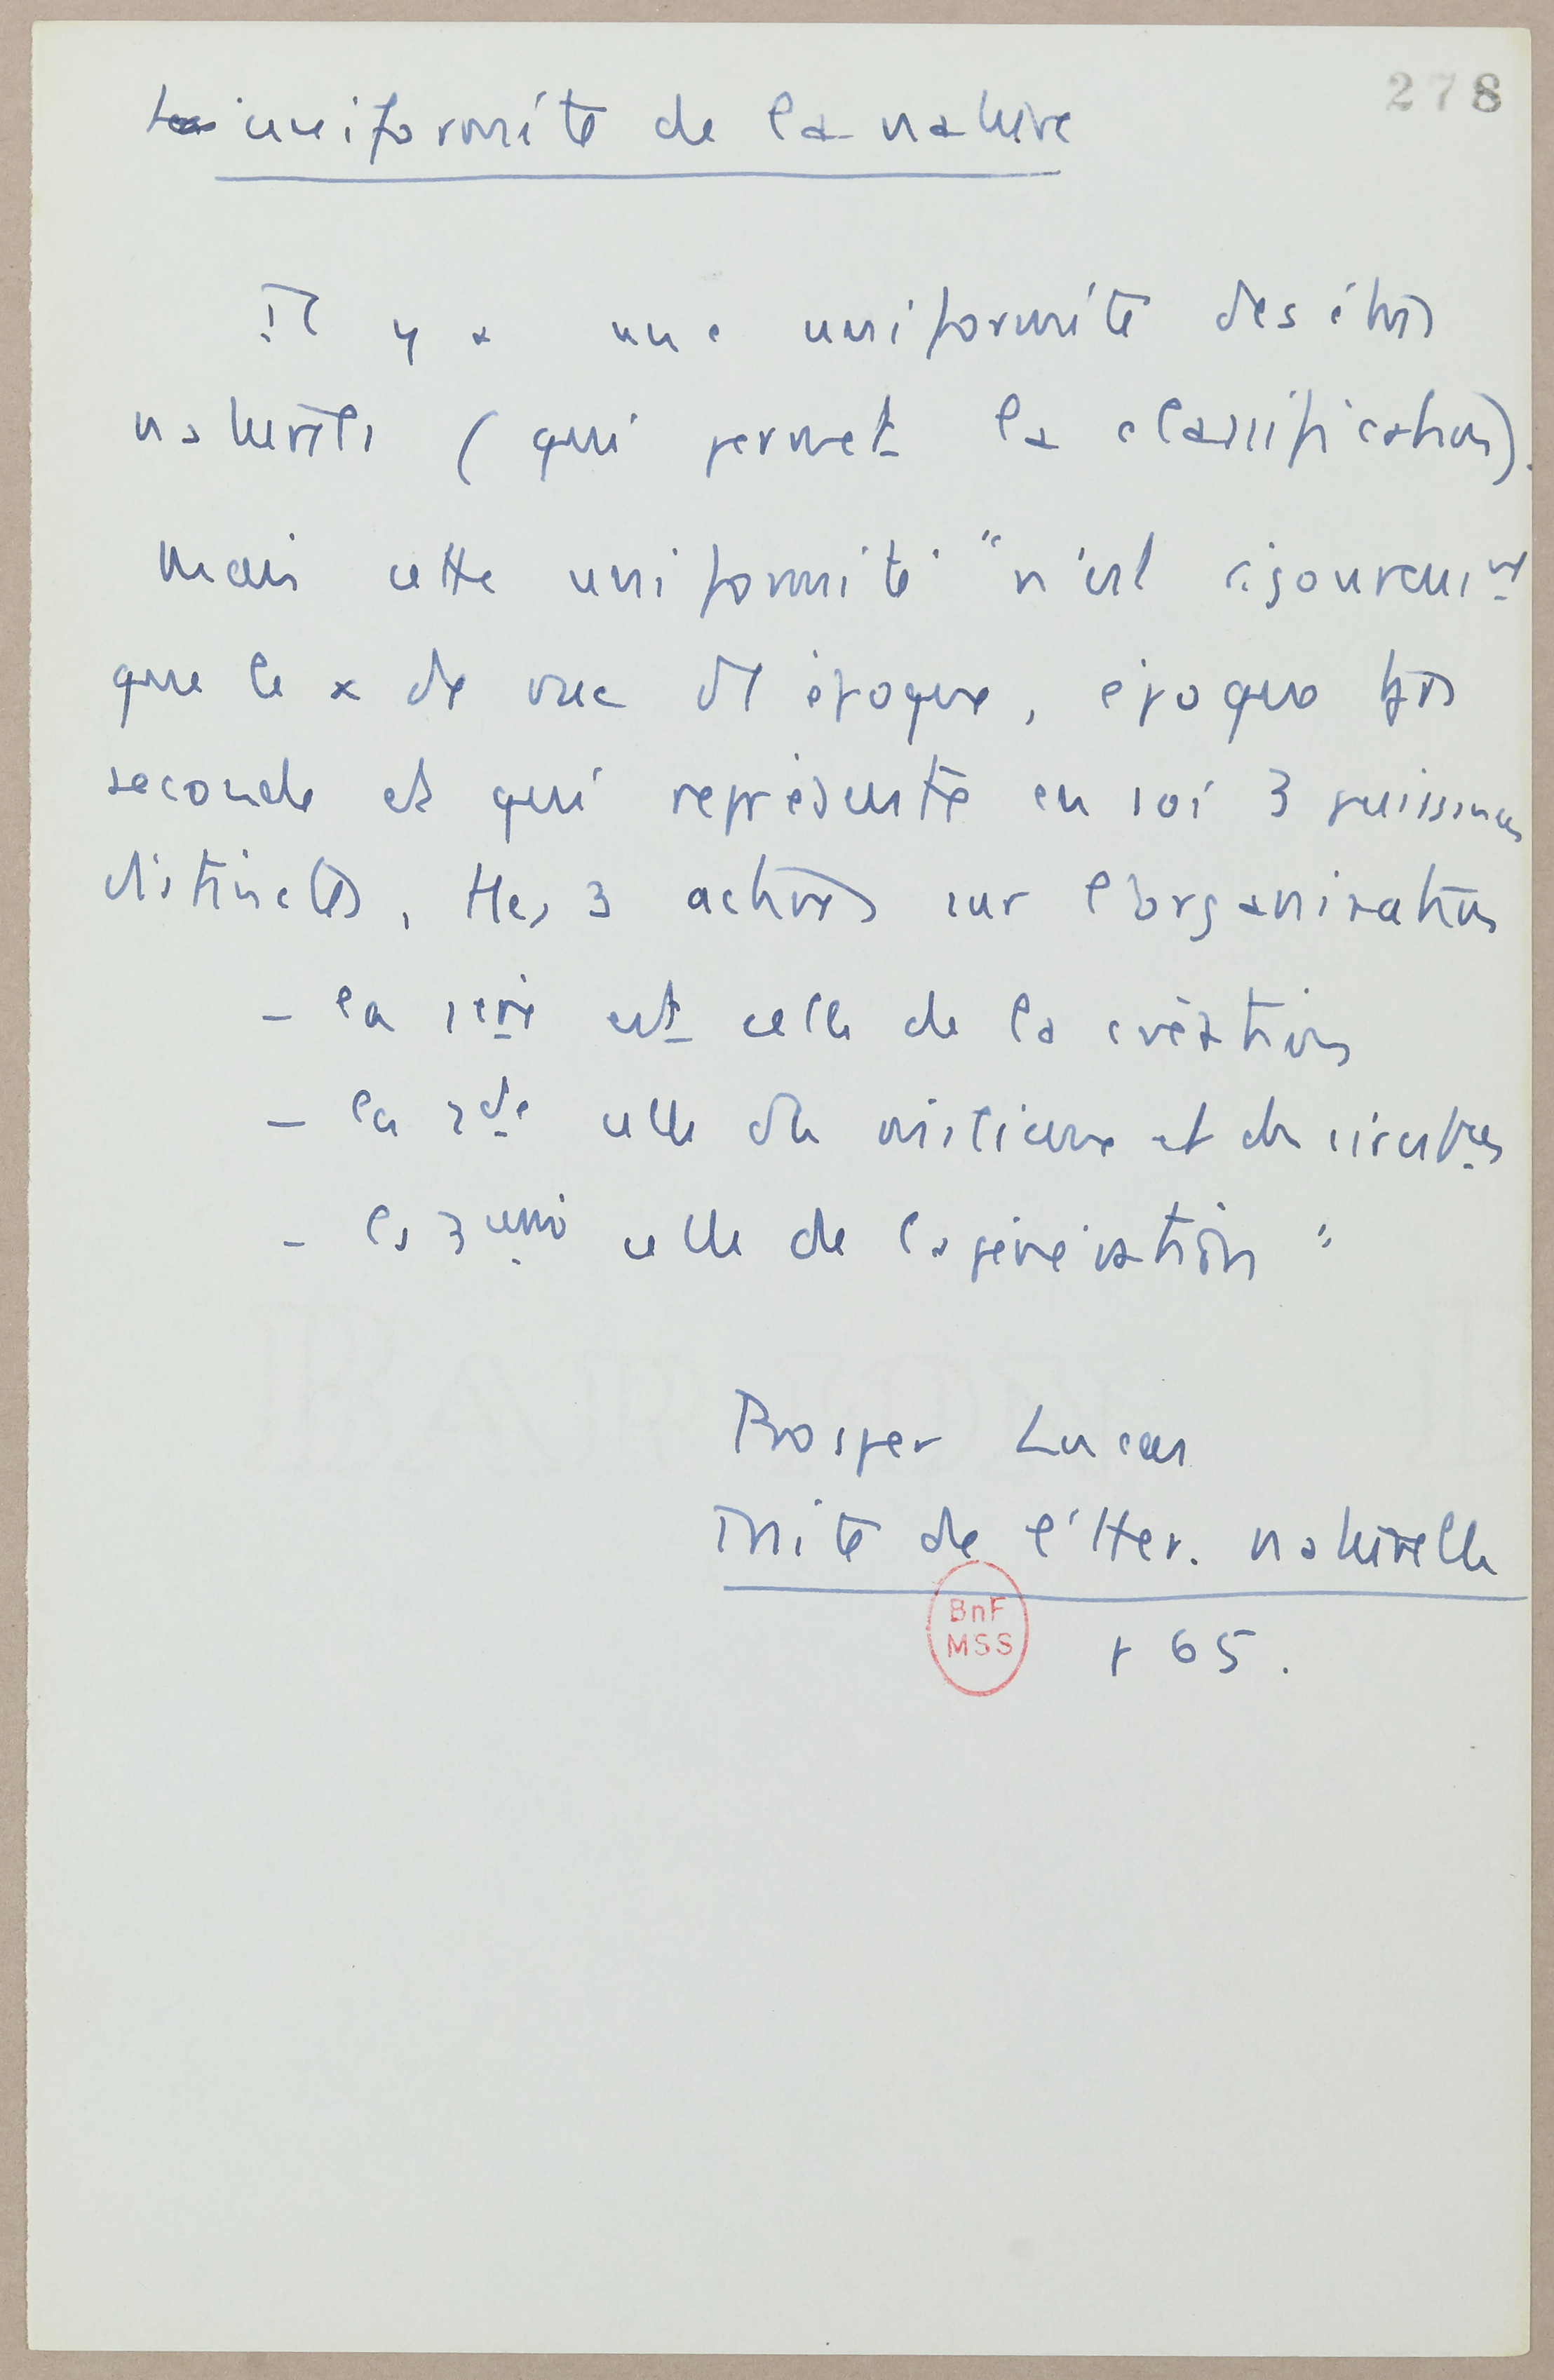 278
uniformité de la nature
Il y a une uniformité des êtres
naturels (qui permet la classification).
Mais cette uniformité "n'est rigoureusemt
que le x de vue de l'époque, époque très
seconde et qui représente en soi 3 puissances
distinctes, ttes 3 actives sur l'organisation
– la 1ère est celle de la création
– la 2de celle du milieu et des circonstces
– la 3ème celle de la génération"
Prosper Lucas
Traité de l'Her. naturelle
p 65.
BnF
MSS